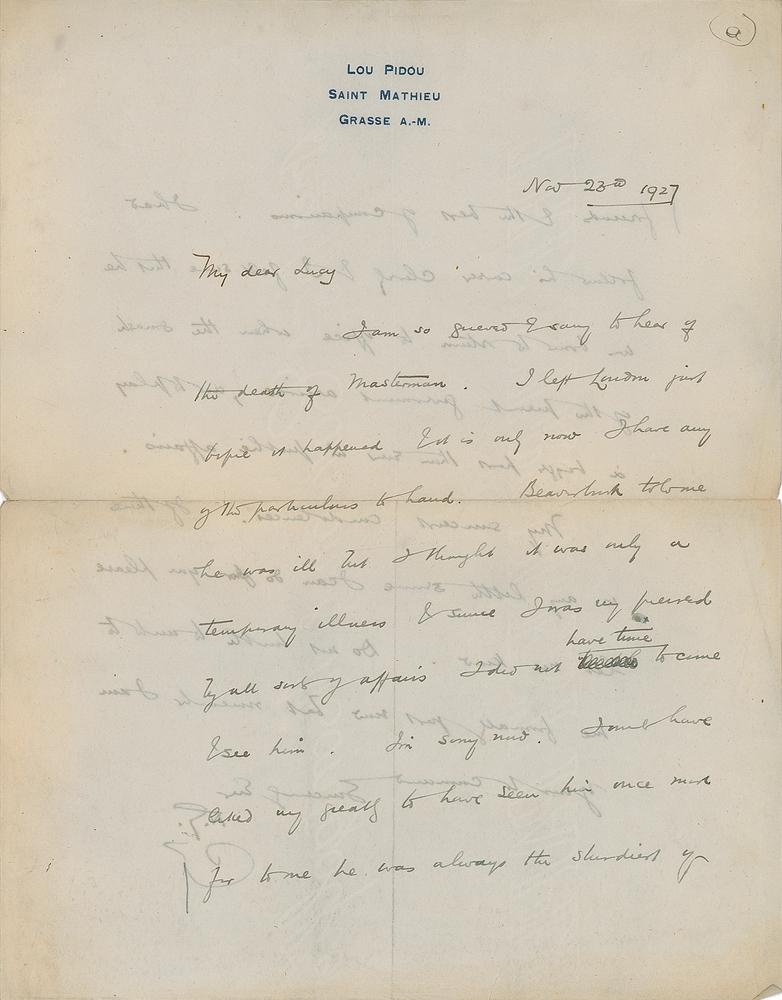 a
LOU PIDOU
SAINT MATHIEU
GRASSE A.-M.
Nov 23rd 1927
My dear Lucy
I am so grieved & sorry to hear of
the death of Masterman. I left London just
before it happened & it is only now I have any
of the particulars to hand. Beaverbrook told me
he was ill but I thought it was only a
temporary illness & since I was very pressed
by all sorts of affairs I did not have time to come
& see him. I'm sorry now. I would have
liked very greatly to have seen him once more
for to me he was always the sturdiest of